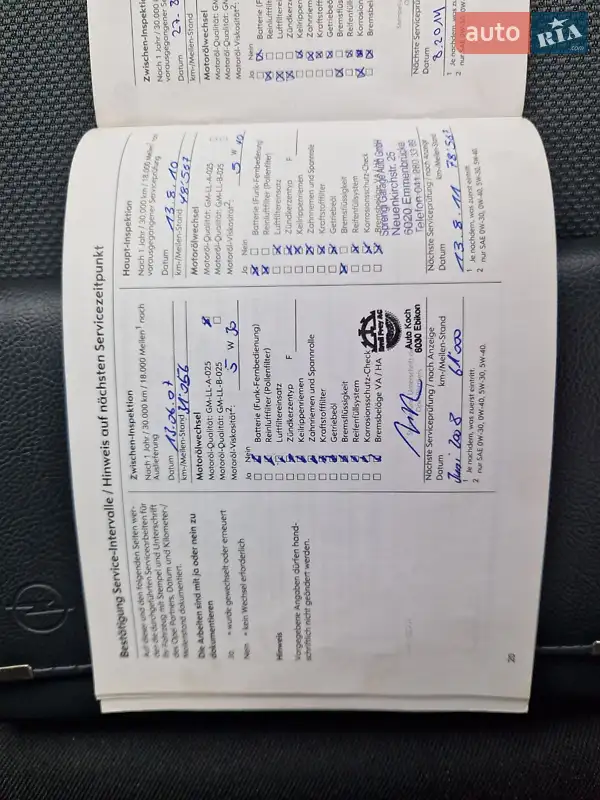 Bestätigung Service-Intervalle / Hinweis auf nächsten Servicezeitpunkt
Auf dieser und den folgenden Seiten wer-
den die durchgeführten Servicearbeiten für
Ihr Fahrzeug mit Stempel und Unterschrift
des Opel Partners, Datum und Kilometer-/
Meilenstand dokumentiert.
Die Arbeiten sind mit ja oder nein zu
dokumentieren
Ja = wurde gewechselt oder erneuert
Nein = kein Wechsel erforderlich
Hinweis
Vorgegebene Angaben dürfen hand-
schriftlich nicht geändert werden.
20
Zwischen-Inspektion
Nach 1 Jahr / 30.000 km / 18.000 Meilen¹ nach
Auslieferung
Datum
km-/Meilen-Stand
Motorölwechsel
Motoröl-Qualität: GM-LL-A-025
Motoröl-Qualität: GM-LL-B-025
Motoröl-Viskosität²: 5 W 30
Ja Nein
Batterie (Funk-Fernbedienung)
Reinluftfilter (Pollenfilter)
Luftfiltereinsatz
Zündkerzentyp F
Keilrippenriemen
Zahnriemen und Spannrolle
Kraftstofffilter
Getriebeöl
Bremsflüssigkeit
Reifenfüllsystem
Korrosionsschutz-Check
Bremsbeläge VA / HA
Auto Koch
6030 Ebikon
Nächste Serviceprüfung / nach Anzeige
Datum km-/Meilen-Stand
Juni 2008 61000
1 Je nachdem, was zuerst eintritt.
2 nur SAE 0W-30, 0W-40, 5W-30, 5W-40.
Haupt-Inspektion
Nach 1 Jahr / 30.000 km / 18.000 Meilen¹
vorausgegangener Serviceprüfung
Datum 13.8.10
km-/Meilen-Stand 48'567
Motorölwechsel
Motoröl-Qualität: GM-LL-A-025
Motoröl-Qualität: GM-LL-B-025
Motoröl-Viskosität²: 5 W
Ja Nein
Batterie (Funk-Fernbedienung)
Reinluftfilter (Pollenfilter)
Luftfiltereinsatz
Zündkerzentyp F
Keilrippenriemen
Zahnriemen und Spannrolle
Kraftstofffilter
Getriebeöl
Bremsflüssigkeit
Reifenfüllsystem
Korrosionsschutz-Check
Garage Auto GmbH
25
6020 Emmenbrücke
Telefon 041
Nächste Serviceprüfung / nach Anzeige
Datum km-/Meilen-Stand
13.8.11
1 Je nachdem, was zuerst eintritt.
2 nur SAE 0W-30, 0W-40, 5W-30, 5W-40.
Zwischen-Inspekti
Nach 1 Jahr / 30.000
vorausgegangener S
Datum
km-/Meilen-Stand
Motorölwechsel
Motoröl-Qualität: GM
Motoröl-Qualität: GM
Motoröl-Viskosität²:
Ja Nein
Nächste Serviceprüf
Datum
8.2014
1 Je nachdem, was zuerst
2 nur SAE
auto RIA
.com